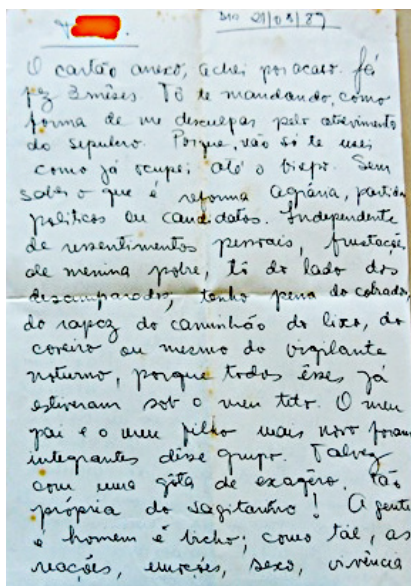 Dia 21/01/89
O cartão anexo, achei por acaso. Já
fez 3 mêses. Tô te mandando, como
forma de me desculpar pelo atrevimento
do sepulcro. Porque, não só te usei
como já ocupei até o bispo. Sem
saber o que é reforma agrária, partidos
políticos ou candidatos. Independente
de ressentimentos pessoais, frustação,
de menina pobre, tô do lado dos
descamparados, tenho pena do cobrador,
do rapaz do caminhão do lixo, do
coveiro ou mesmo do vigilante
noturno, porque todos êsses já
estiveram sob o meu teto. O meu
pai e o meu filho mais novo foram
integrantes dêsse grupo. Talvez
com uma gôta de exagêro, tão
própria do sagitariano! A gente
é homem é bicho; como tal, as
reações, emoções, sexo, vivência